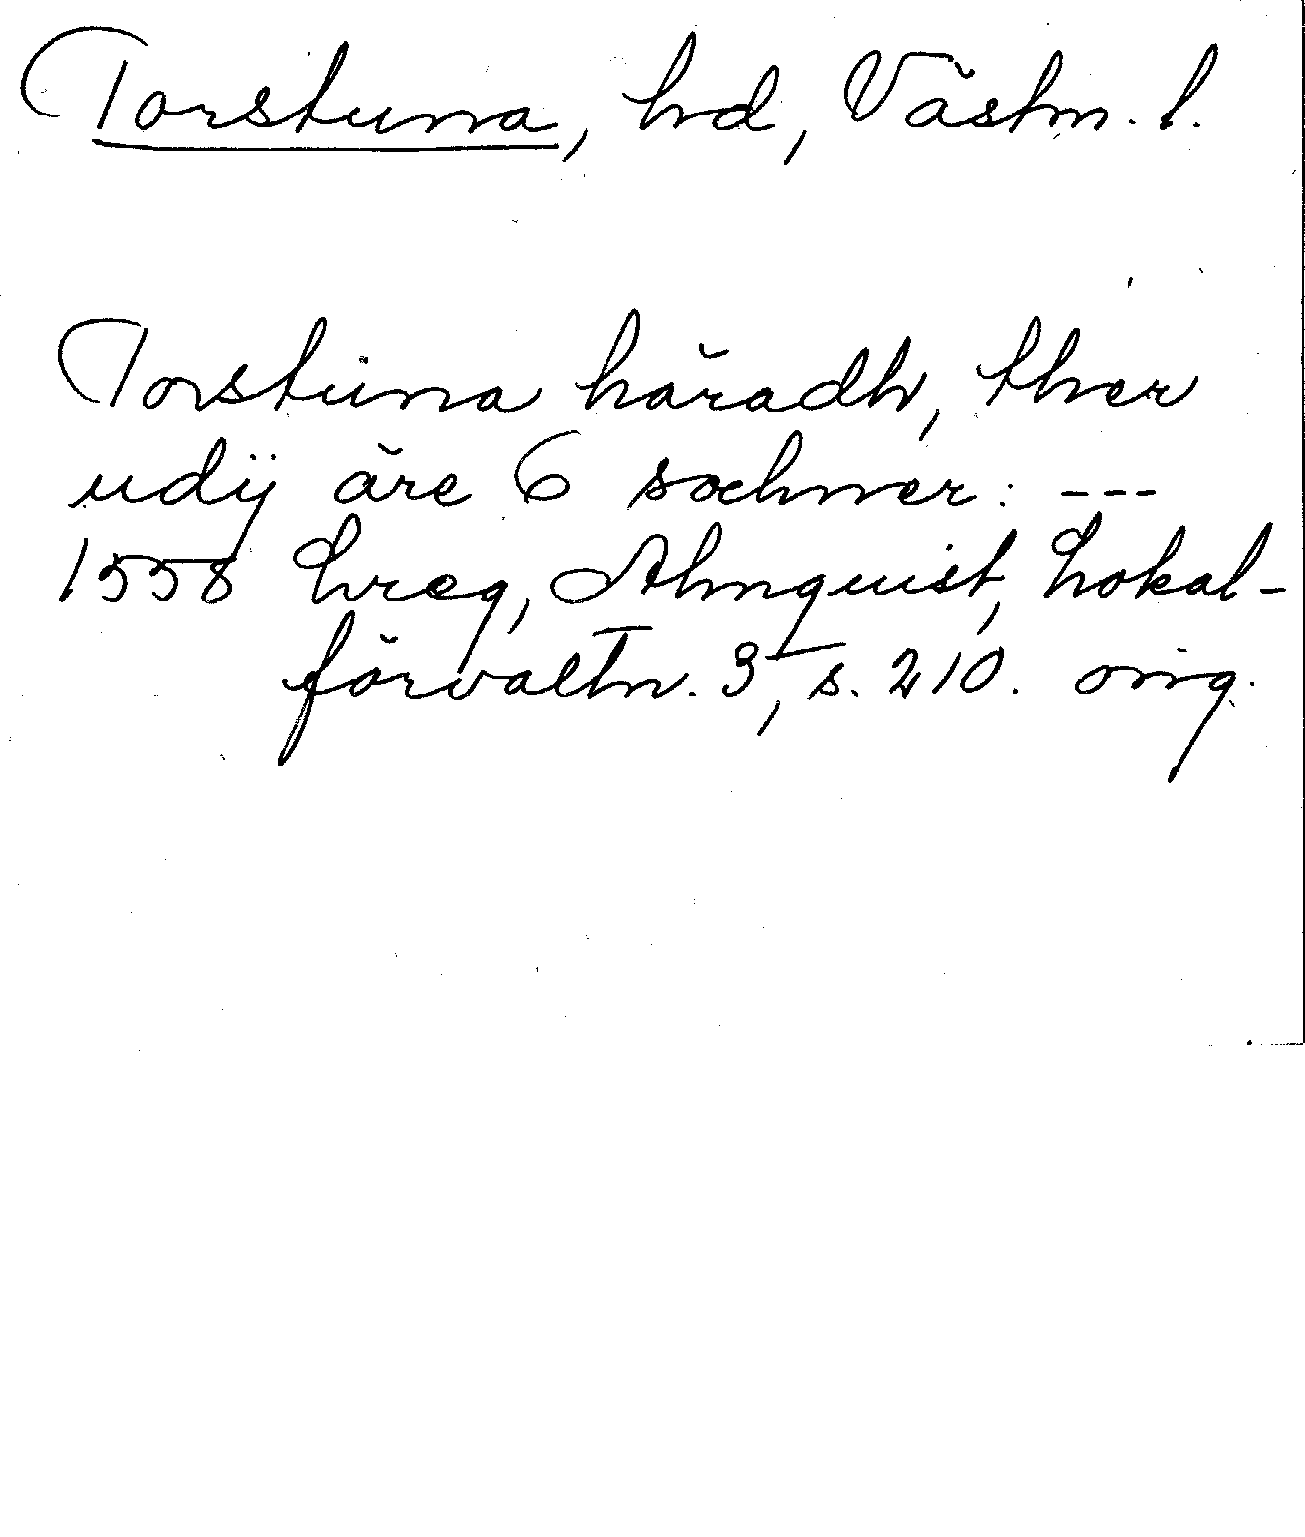 Torstuna, hd, Västm. l.
Torstuna häradh, ther
udij äre 6 sochner: ---
1558 Lreg, Almquist, Lokal-
förvaltn. 3, s. 210. orig.